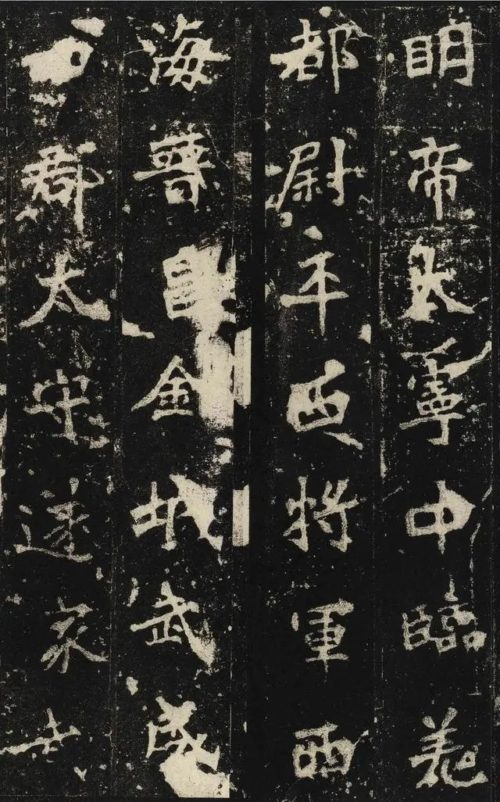 明帝太寧中臨羌
都尉平西將軍西
海晉昌金城武威
郡太守遂家